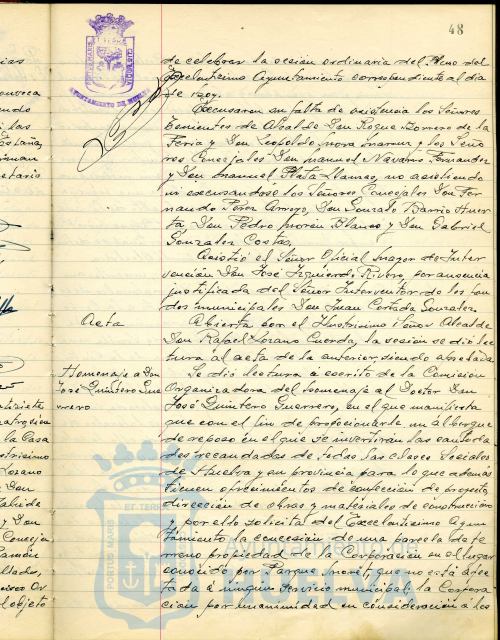 48
de celebrar la sesión ordinaria del Pleno del
Excelentísimo Ayuntamiento correspondiente al día
de hoy.
Excusaron su falta de asistencia los Señores
Tenientes de Alcalde Don Roque Borrero de la
Feria y Don Leopoldo y los Seño
res Concejales Don Manuel Navarro Fernández
y Don Manuel Plata Llamas, no asistiendo
ni excusandose los Señores Concejales Don Fer
nando Pérez Arroyo, Don Gonzalo Barrio Huer
ta, Don Pedro Morón Blanco y Don Gabriel
González Costas.
Asistió el Señor Oficial Mayor de Inter
vención Don José Izquierdo Rivero, por ausencia
justificada del Señor Interventor de los fon
dos municipales Don Juan Cortada González.
Acta
Abierta por el Ilustrísimo Señor Alcalde
Don Rafael Lozano Cuerda, la sesión se dió lec
tura al acta de la anterior, siendo aprobada.
Homenaje a Don
José Quintero Gue
rrero
Se dió lectura a escrito de la Comisión
Organizadora del homenaje al Doctor Don
José Quintero Guerrero, en el que manifiesta
que con el fin de proporcionarle un albergue
de reposo en el que se invertirán las cantida
des recaudadas de todas las clases sociales
de Huelva y su provincia para lo que además
tienen ofrecimientos de confección de proyecto,
dirección de obras y materiales de construcción
y por ello solicita del Excelentísimo Ayun
tamiento la concesión de una parcela de te
rreno propiedad de la Corporación en el lugar
conocido por Parque Moret, que no está afec
tada a ningún servicio municipal. La Corpora
ción por unanimidad en consideración a los
AYUNTAMIENTO DE HUELVA
PORTUS MARIS
ET TERRAE
HUELVA